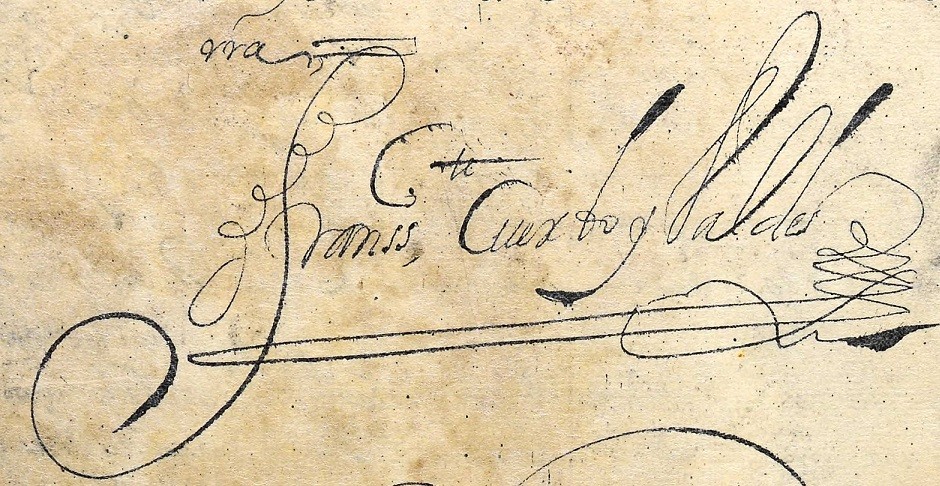 rra
Franss,co Cuerbo y Valdes